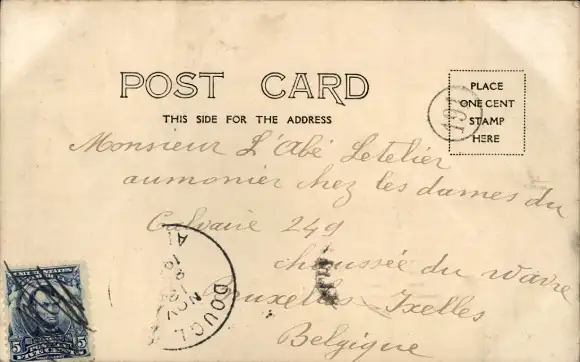 POST CARD
THIS SIDE FOR THE ADDRESS
PLACE
ONE CENT
STAMP
HERE
191
Monsieur L'Abé Letelier
aumonier chez les dames du
Calvaire 249
chaussée du wavre
Bruxelles-Ixelles
Belgique
DOUGL
NOV
UNITED STATES
5 5